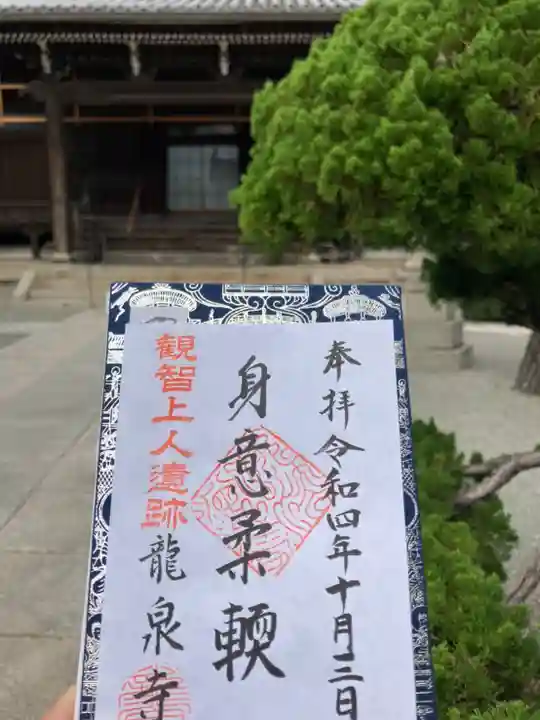 奉拝 令和四年十月三日
身意柔輭
観智上人遺跡
龍泉寺